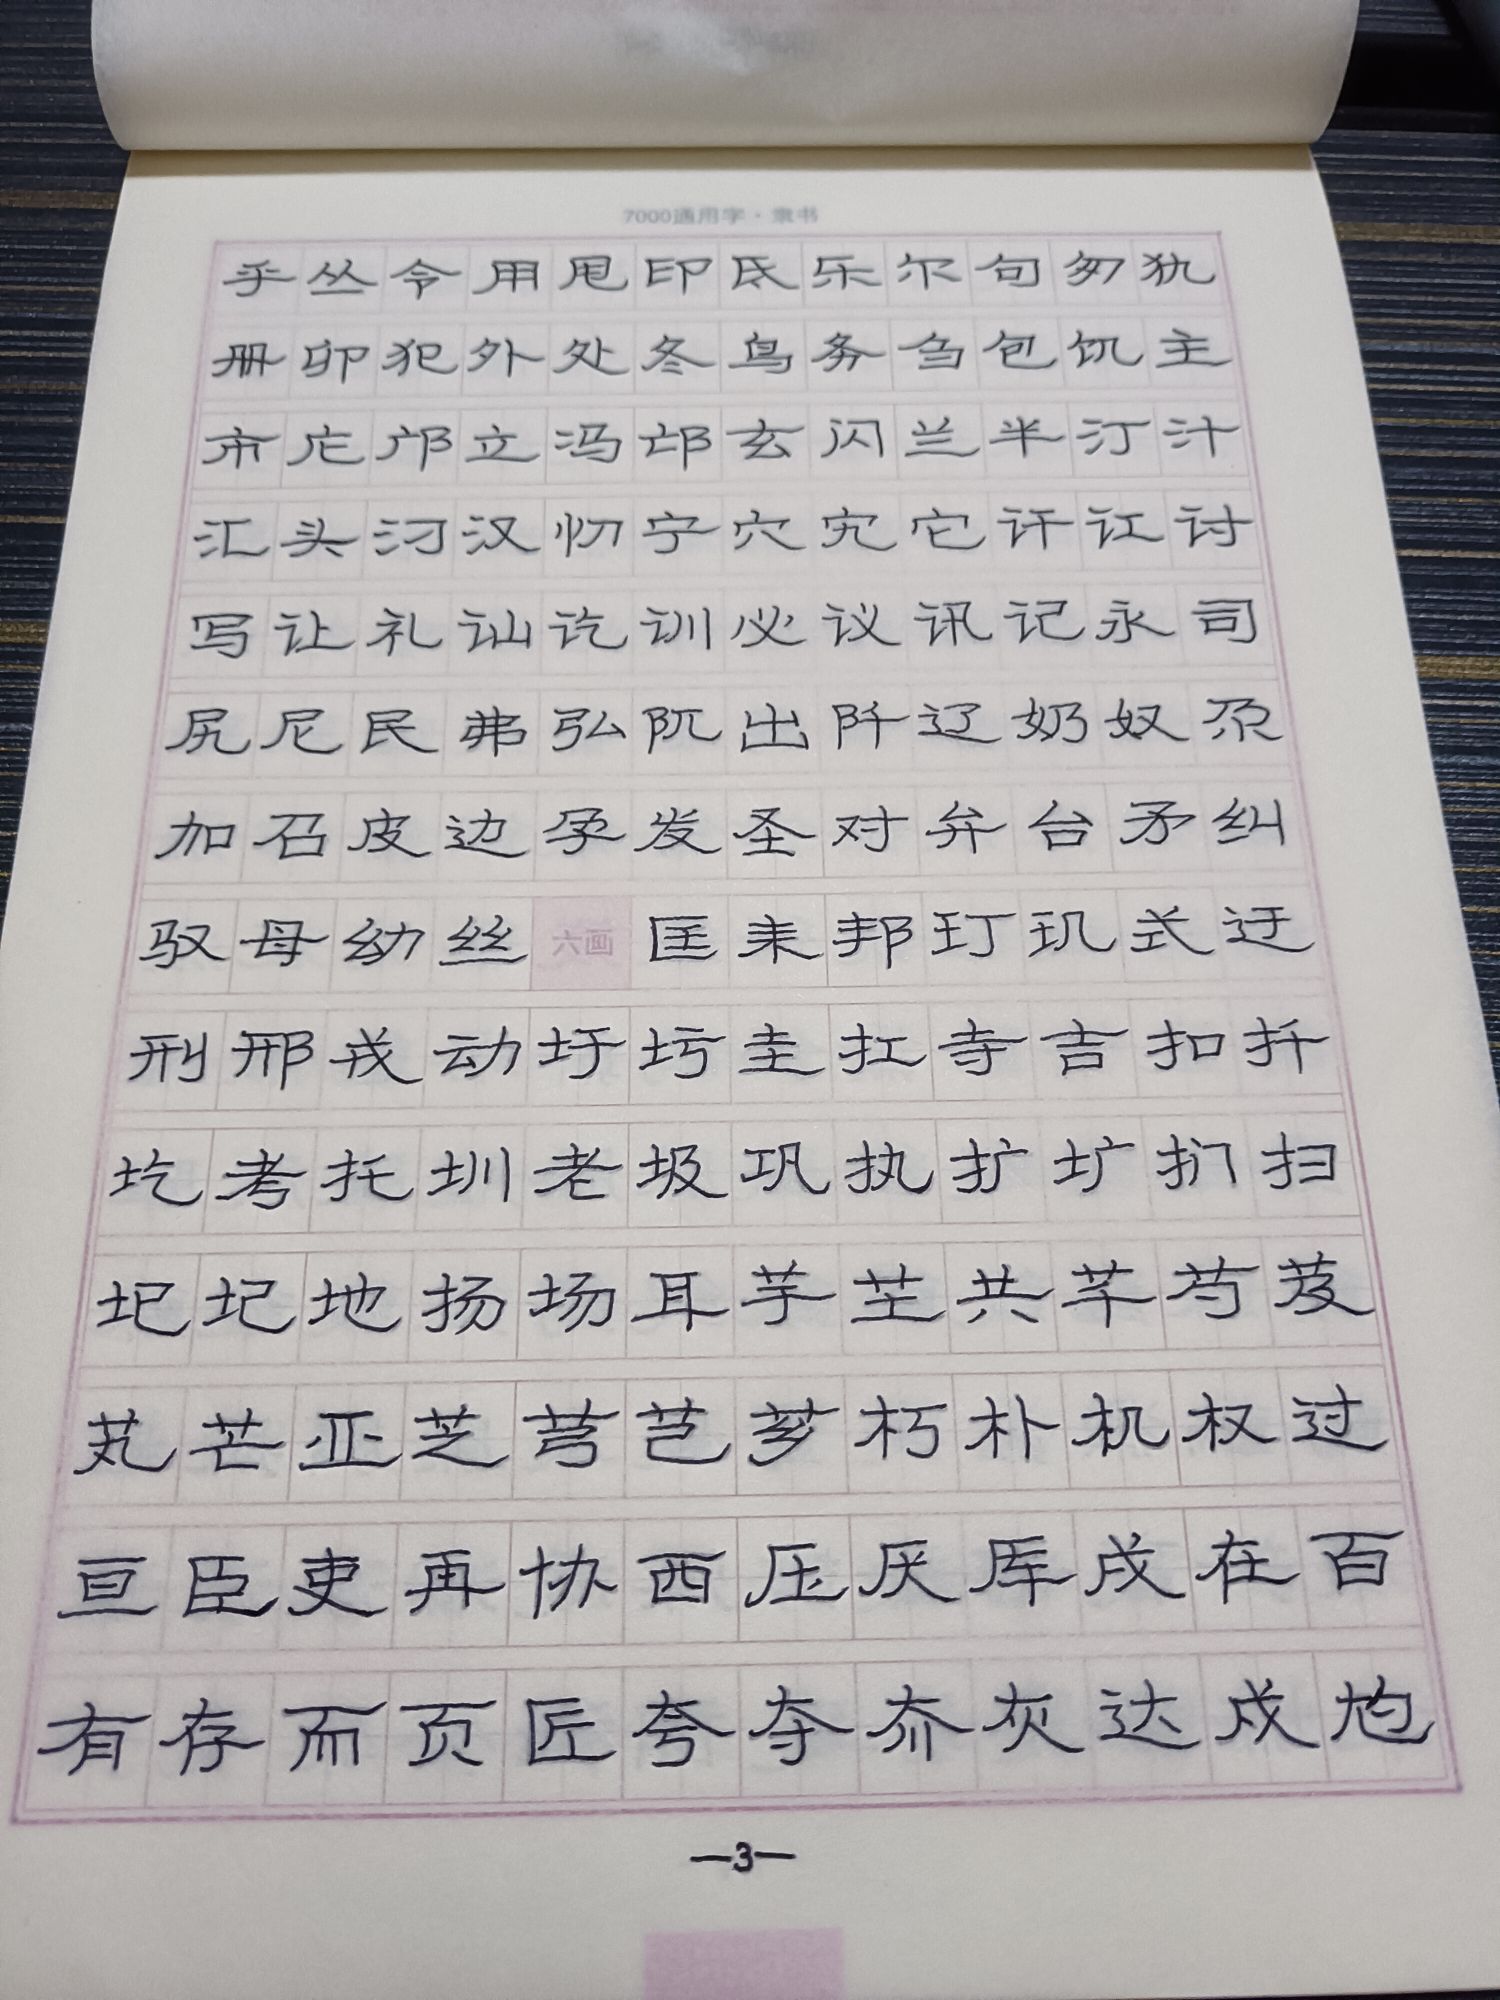 7000通用字·隶书
乎丛令用甩印氐乐尔句匆犰
册卯犯外处冬鸟务刍包饥主
市庀邝立冯邙玄闪兰半汀汁
汇头汈汉忉宁穴宄它讦讧讨
写让礼讪讫训必议讯记永司
尻尼民弗弘阢出阡辽奶奴尕
加召皮边孕发圣对弁台矛纠
驭母幼丝六画匡耒邦玎玑式迂
刑邢戎动圩圬圭扛寺吉扣扦
圪考托圳老圾巩执扩圹扪扫
圯圮地扬场耳芋芏共芊芍芨
芄芒亚芝芎芑芗朽朴机权过
亘臣吏再协西压厌厍戌在百
有存而页匠夸夺夼灰达戍尥
—3—